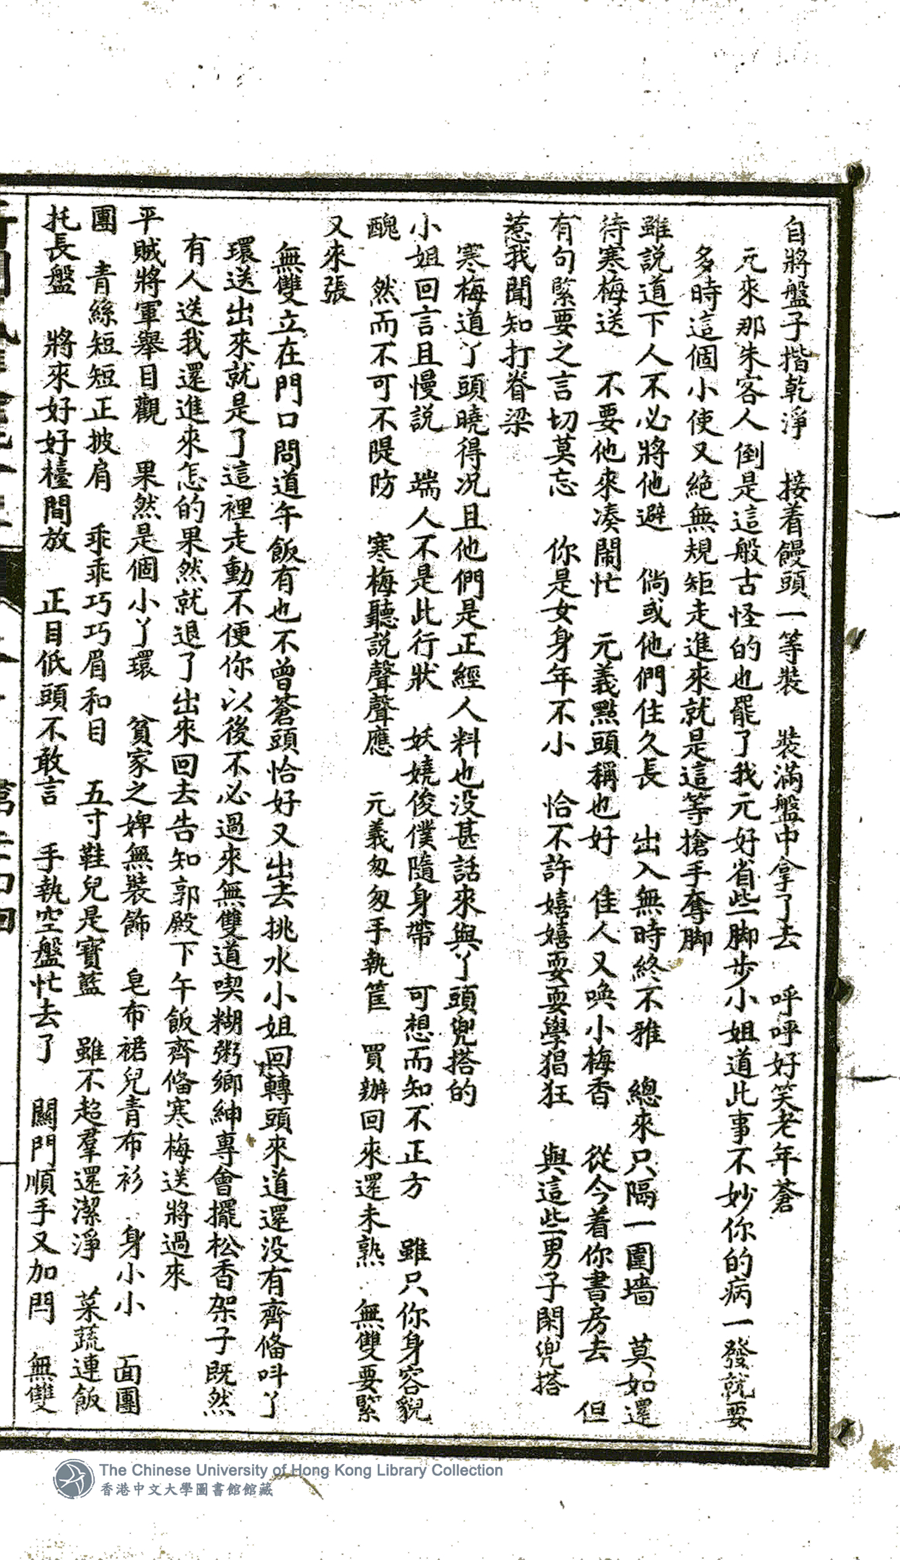 自將盤子揩乾淨　接着饅頭一等裝　裝滿盤中拿了去　呼呼好笑老年蒼
元來那朱客人倒是這般古怪的也罷了我元好省些脚步小姐道此事不妙你的病一發就要
多時這個小使又絕無規矩走進來就是這等搶手奪脚
雖說道下人不必將他避　倘或他們住久長　出入無時終不雅　總來只隔一圍墻　莫如還
待寒梅送　不要他來凑閙忙　元義點頭稱也好　佳人又喚小梅香　從今着你書房去　但
有句緊要之言切莫忘　你是女身年不小　恰不許嬉嬉耍耍學猖狂　與這些男子閑兜搭
惹我聞知打脊梁
寒梅道丫頭曉得况且他們是正經人料也没甚話來與丫頭兜搭的
小姐回言且慢説　端人不是此行狀　妖嬈俊僕隨身帶　可想而知不正方　雖只你身容貌
醜　然而不可不隄防　寒梅聽説聲聲應　元義匆匆手執筐　買辦回來還未熟　無雙要緊
又來張
無雙立在門口問道午飯有也不曾蒼頭恰好又出去挑水小姐回轉頭來道還没有齊俻呌丫
環送出來就是了這裡走動不便你以後不必過來無雙道喫糊粥鄉紳專會擺松香架子既然
有人送我還進來怎的果然就退了出來回去告知郭殿下午飯齊俻寒梅送將過來
平賊將軍舉目觀　果然是個小丫環　貧家之婢無裝飾　皂布裙兒青布衫　身小小　面團
團　青絲短短正披肩　乖乖巧巧眉和目　五寸鞋兒是寶藍　雖不超羣還潔淨　菜蔬連飯
托長盤　將來好好檯間放　正目低頭不敢言　手執空盤忙去了　關門順手又加閂　無雙
The Chinese University of Hong Kong Library Collection
香港中文大學圖書館館藏